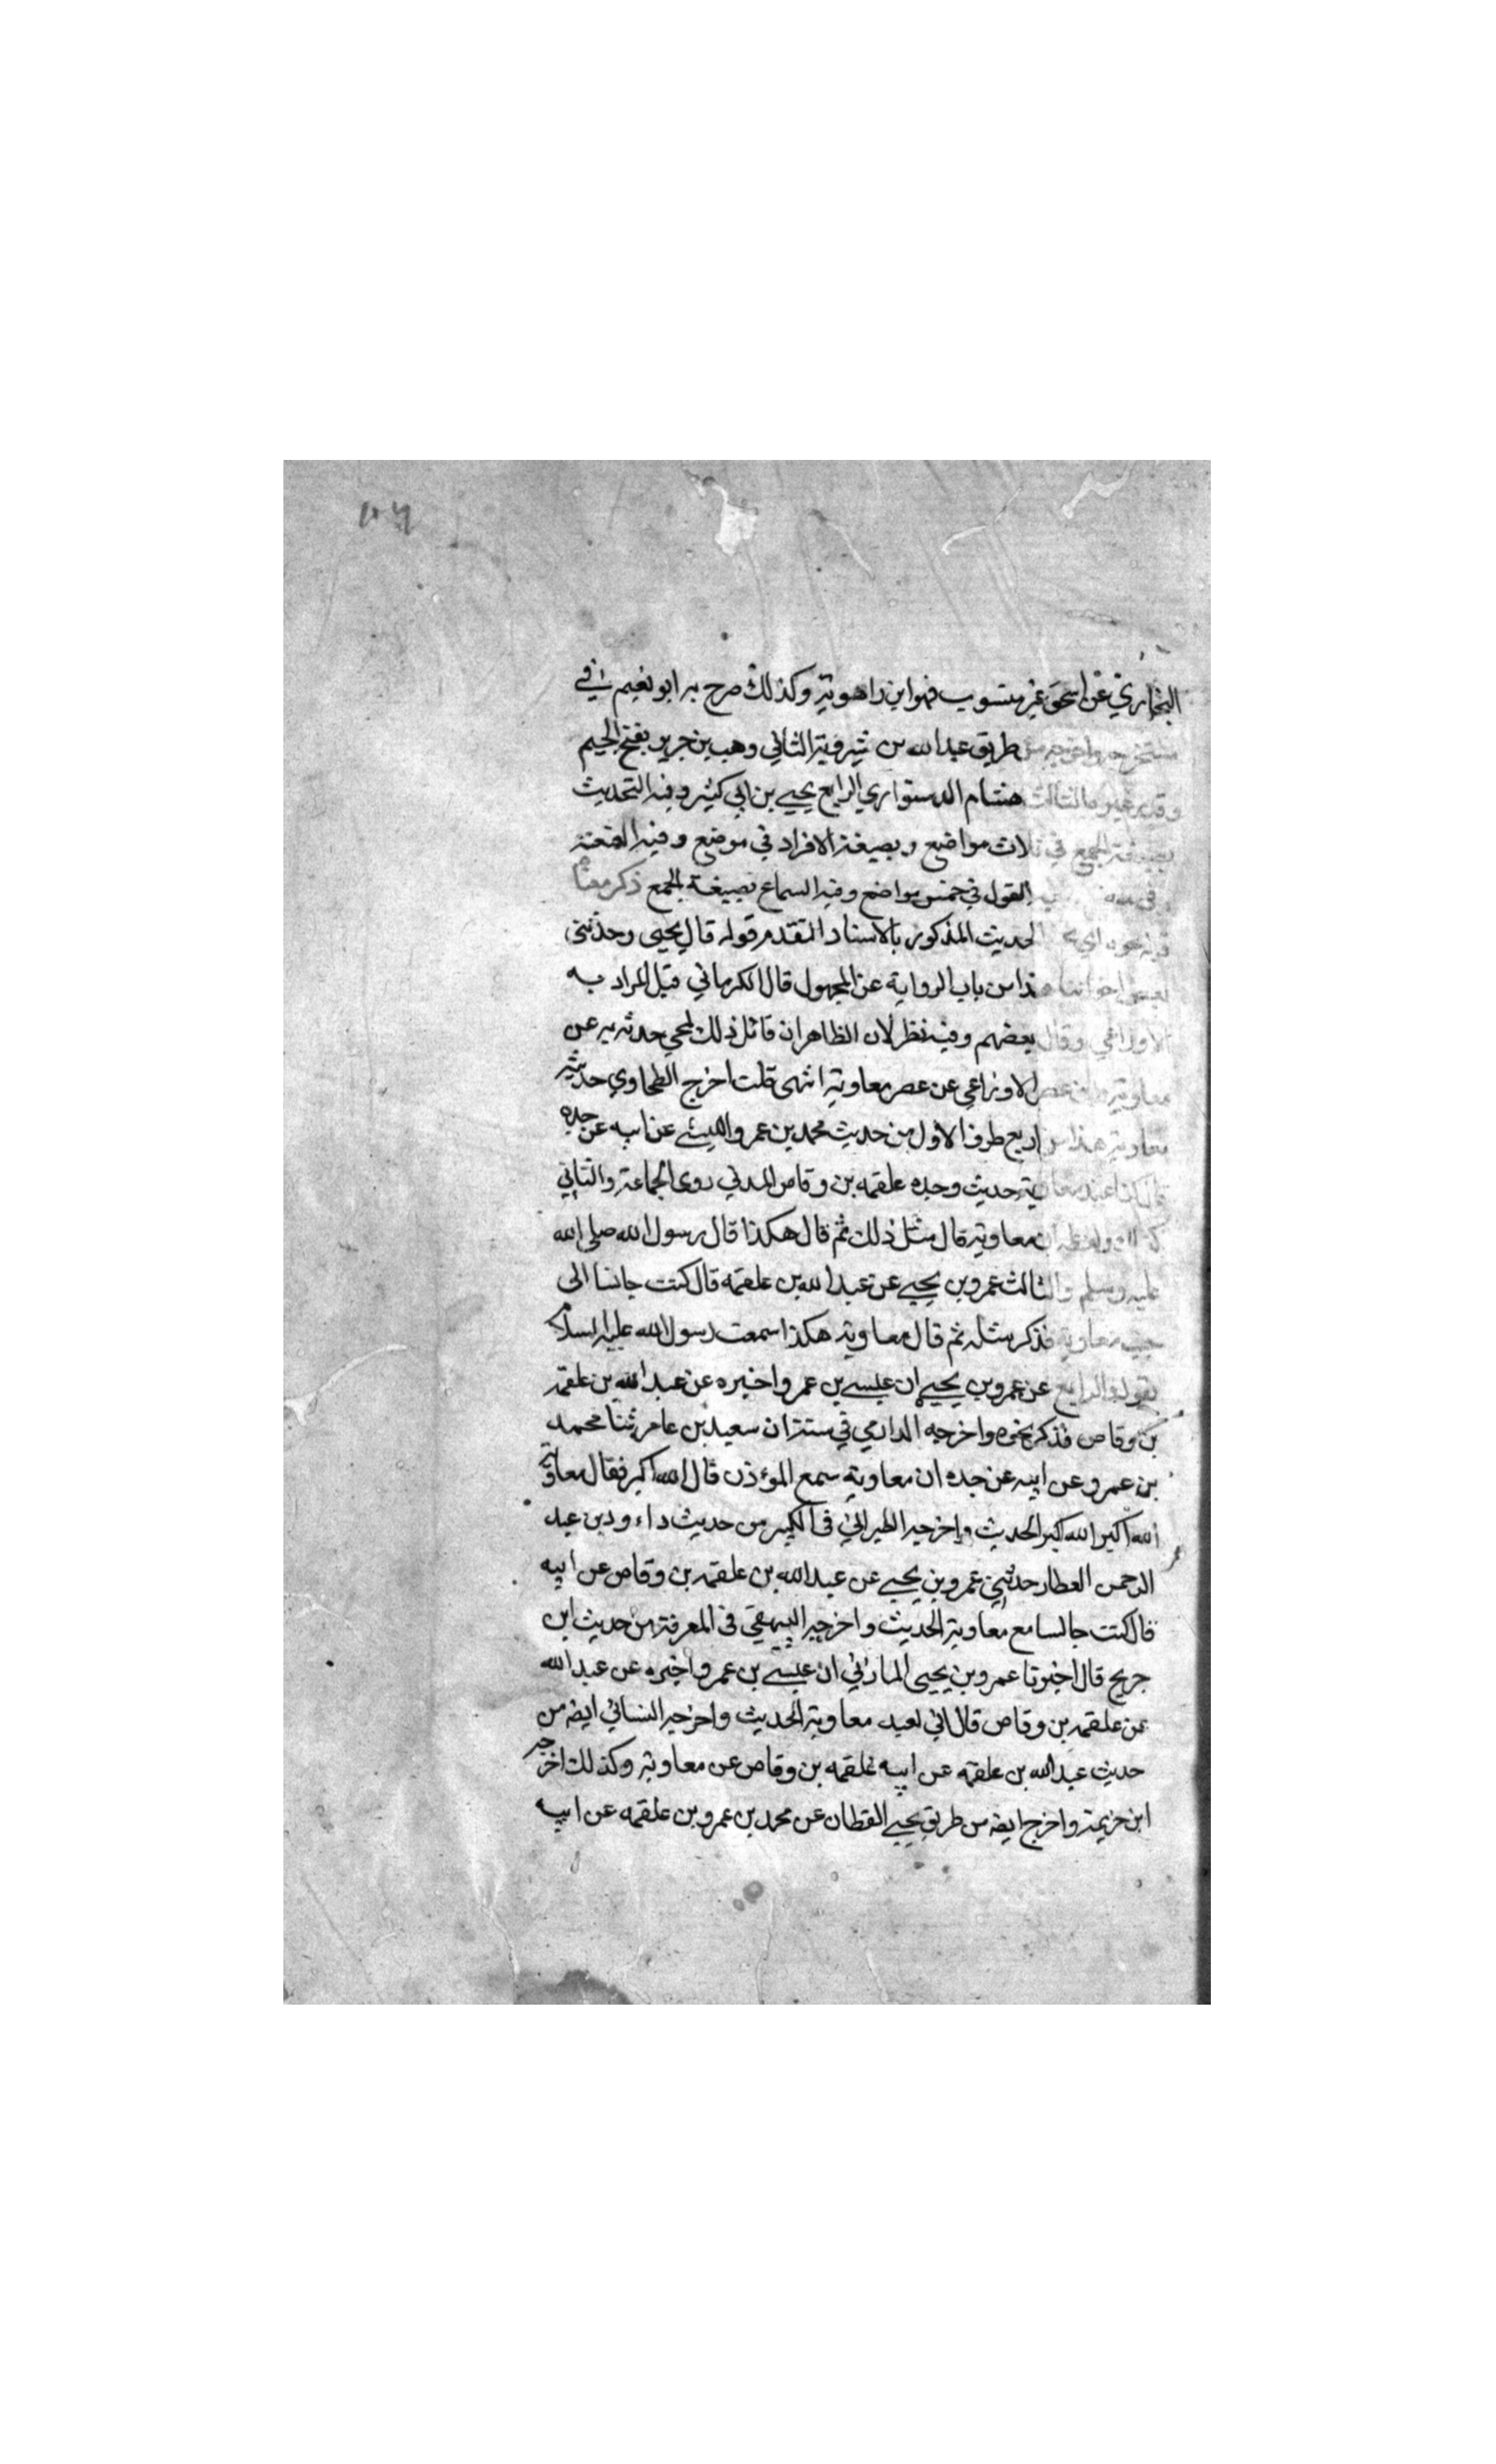 البخاري عن اسحق غير منسوب فهو ابن راهويه وكذلك صرح به ابو نعيم في
مستخرجه واخرجه من طريق عبد الله بن شيرويه الثاني وهب بن جرير بفتح الجيم
وقد مر غير ما الثالث هشام الدستوائي الرابع يحيى بن ابي كثير وفيه التحديث
بصيغة الجمع في ثلاث مواضع وبصيغة الافراد في موضع وفيه العنعنة
القول في خمس مواضع وفيه السماع بصيغة الجمع ذكر معناه
قوله نحوه اي الحديث المذكور بالاسناد المتقدم قوله قال يحيى وحدثني
بعض اخواننا هذا من باب الرواية عن المجهول قال الكرماني قيل المراد به
الاوزاعي وقال بعضهم وفيه نظر لان الظاهر ان قائل ذلك ليحيى حدثه به عن
معاوية واين عصر الاوزاعي عن عصر معاوية انتهى قلت اخرج الطحاوي حديث
معاوية هذا من اربع طرف الاول من حديث محمد بن عمرو الليثي عن ابيه عن جده
قال كنا عند معاوية حديث وجده علقمه بن وقاص المدني روى الجماعة والثاني
كذلك ولفظه ان معاوية قال مثل ذلك ثم قال هكذا قال رسول الله صلى الله
عليه وسلم والثالث عمرو بن يحيى عن عبد الله بن علقمه قال كنت جالسا الى
جنب معاوية فذكر مثله ثم قال معاوية هكذا سمعت رسول الله عليه السلام
يقول والرابع عن عمرو بن يحيى ان عيسى بن عمرو اخبره عن عبد الله بن علقمه
بن وقاص فذكر نحوه واخرجه الدارمي في سننه ان سعيد بن عامر ثنا محمد
بن عمرو عن ابيه عن جده ان معاوية سمع المؤذن قال الله اكبر فقال معاوية
الله اكبر الله اكبر الحديث واخرجه الطبراني في الكبير من حديث داءود بن عبد
الرحمن العطار حدثني عمرو بن يحيى عن عبد الله بن علقمه بن وقاص عن ابيه
قال كنت جالسا مع معاوية الحديث واخرجه البيهقي في المعرفة من حديث ابن
جريج قال اخبرنا عمرو بن يحيى المازني ان عيسى بن عمرو اخبره عن عبد الله
عن علقمه بن وقاص قال اني لعند معاوية الحديث واخرجه النسائي ايضه من
حديث عبد الله بن علقمه عن ابيه علقمه بن وقاص عن معاوية وكذلك اخرجه
ابن خزيمة واخرج ايضه من طريق يحيى القطان عن محمد بن عمرو بن علقمه عن ابيه